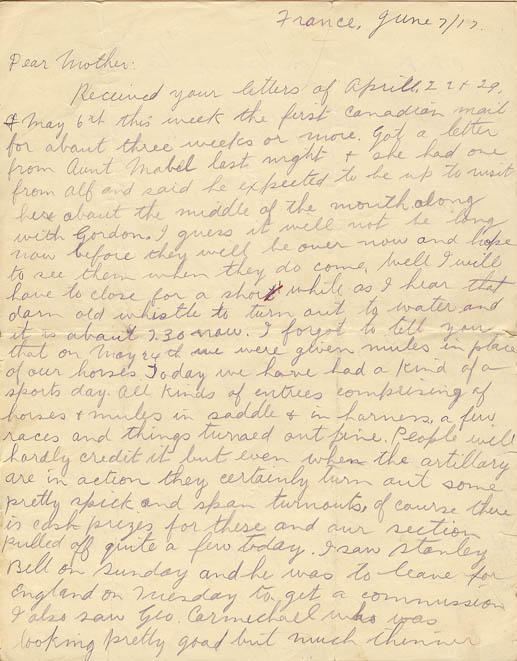 France, June 7/17.
Dear Mother:
Received your letters of April 22 & 29,
& May 6th this week the first canadian mail
for about three weeks or more. Got a letter
from Aunt Mabel last night & she had one
from Alf and said he expected to be up to visit
here about the middle of the month along
with Gordon. I guess it well not be long
now before they well be over now and hope
to see them when they do come. Well I will
have to close for a short while as I hear that
darn old whistle to turn out to water and
it is about 7.30 now. I forgot to tell you
that on May 24th we were given mules in place
of our horses. Today we have had a kind of a
sports day. All kinds of entrees comprising of
horses & mules in saddle & in harness, a few
races and things turned out fine. People will
hardly credit it but even when the artillary
are in action they certainly turn out some
pretty spick and span turnouts, of course there
is cash prizes for these and our section
pulled off quite a few today. I saw Stanley
Bell on Sunday and he was to leave for
England on Tuesday to get a commission
I also saw Geo. Carmechael who was
looking pretty good but much thinner